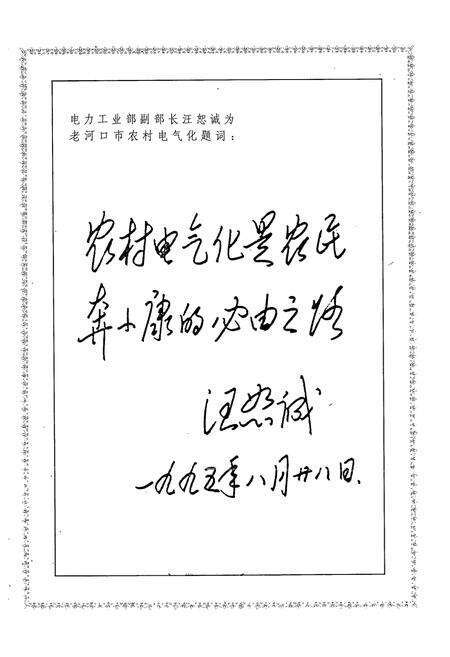 电力工业部副部长汪恕诚为
老河口市农村电气化题词：
农村电气化是农民
奔小康的必由之路
汪恕诚
一九九五年八月廿八日.